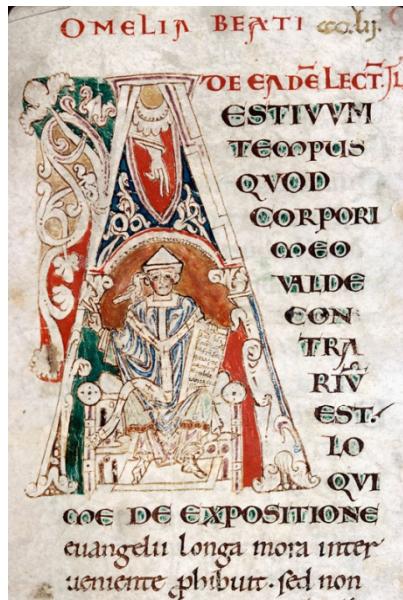 OMELIA BEATI
DE EADĒ LECT.
AESTIVVM
TEMPUS
QVOD
CORPORI
MEO
VALDE
CON
TRA
RIV̄
EST.
LO
QVI
ME DE EXPOSITIONE
euangelii longa mora inter
ueniente phibuit. sed non